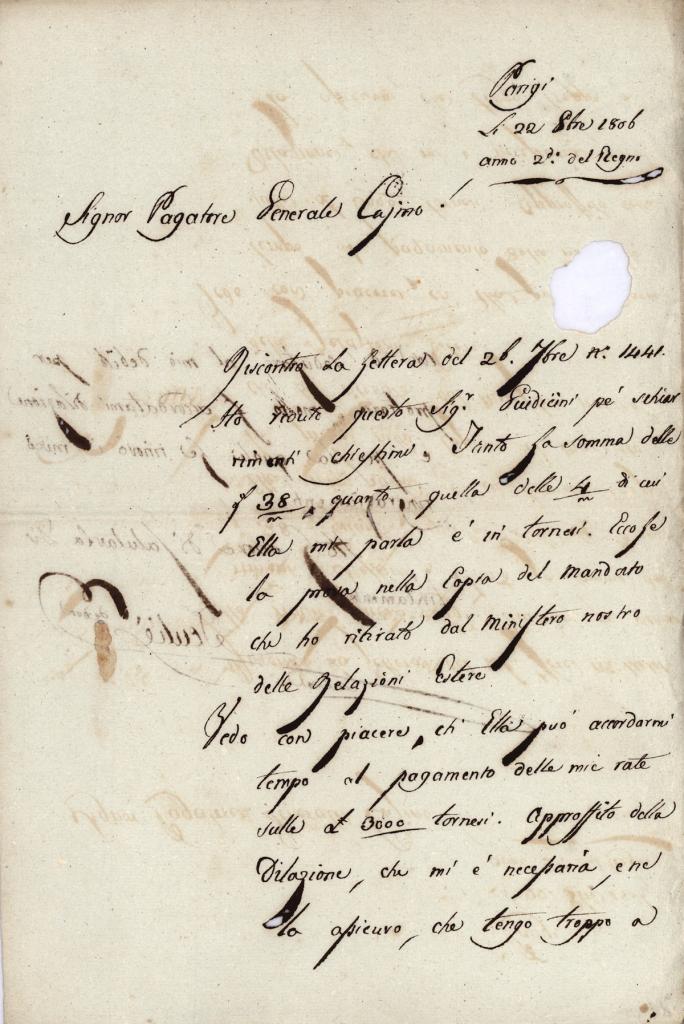 Parigi
Li 22 8bre 1806
anno 2do: del Regno
Signor Pagatore Generale
Riscontro La Lettera del 26. 7bre no. 1441.
Ho veduto questo Sigr. Guidicini pe' schiar
rimenti chiestimi. Tanto La somma delle
38/m, quanto quella delle 4/m di cui
Ella mi parla è in tornesi. Eccole
la prova nella Copia del Mandato
che ho ritirato dal Ministero nostro
delle Relazioni Estere
Vedo con piacere, ch'Ella può accordarmi
tempo al pagamento delle mie rate
sulle 3000 tornesi. Approffito della
Dilazione, che mi è necessaria, e ne
la assicuro, che tengo troppo a